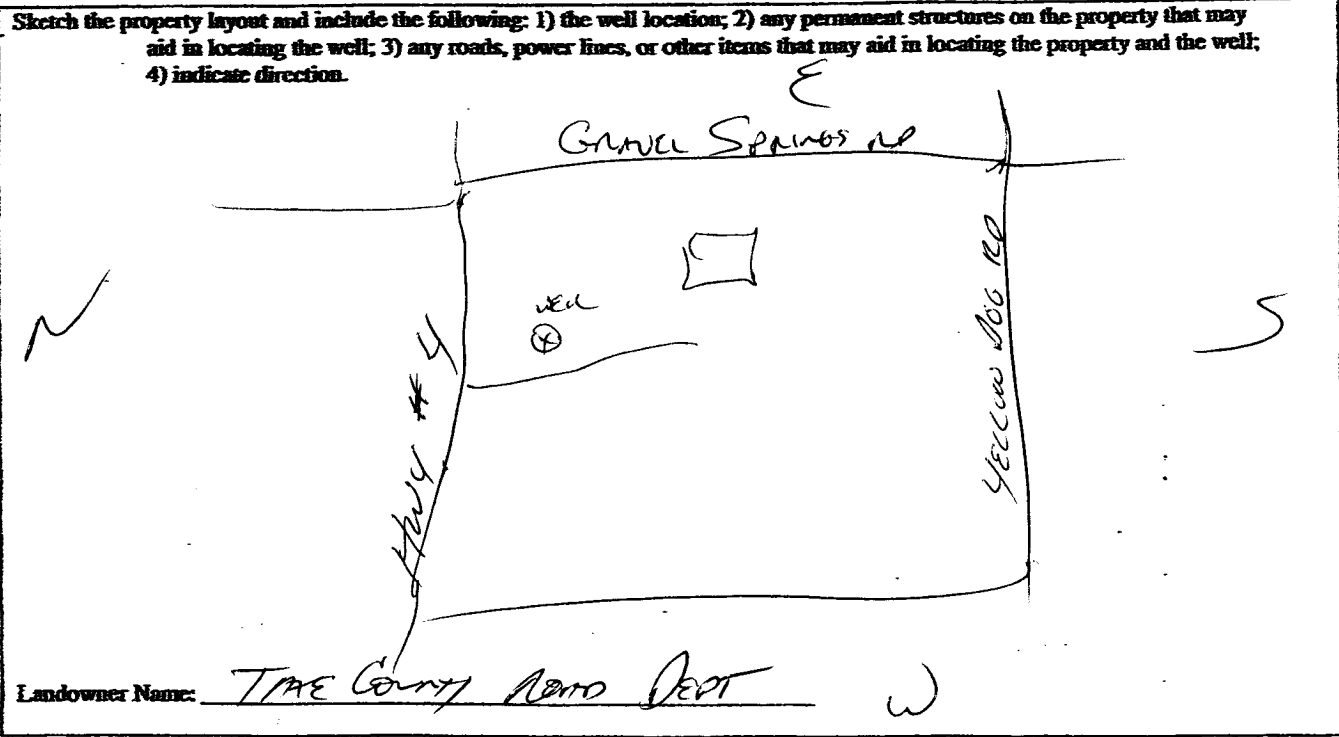 Sketch the property layout and include the following: 1) the well location; 2) any permanent structures on the property that may
aid in locating the well; 3) any roads, power lines, or other items that may aid in locating the property and the well;
4) indicate direction.
E
GRAVEL SPRINGS RD
N
WELL
HWY # 4
YELLOW DOG RD
S
Landowner Name: TATE COUNTY ROAD DEPT
W